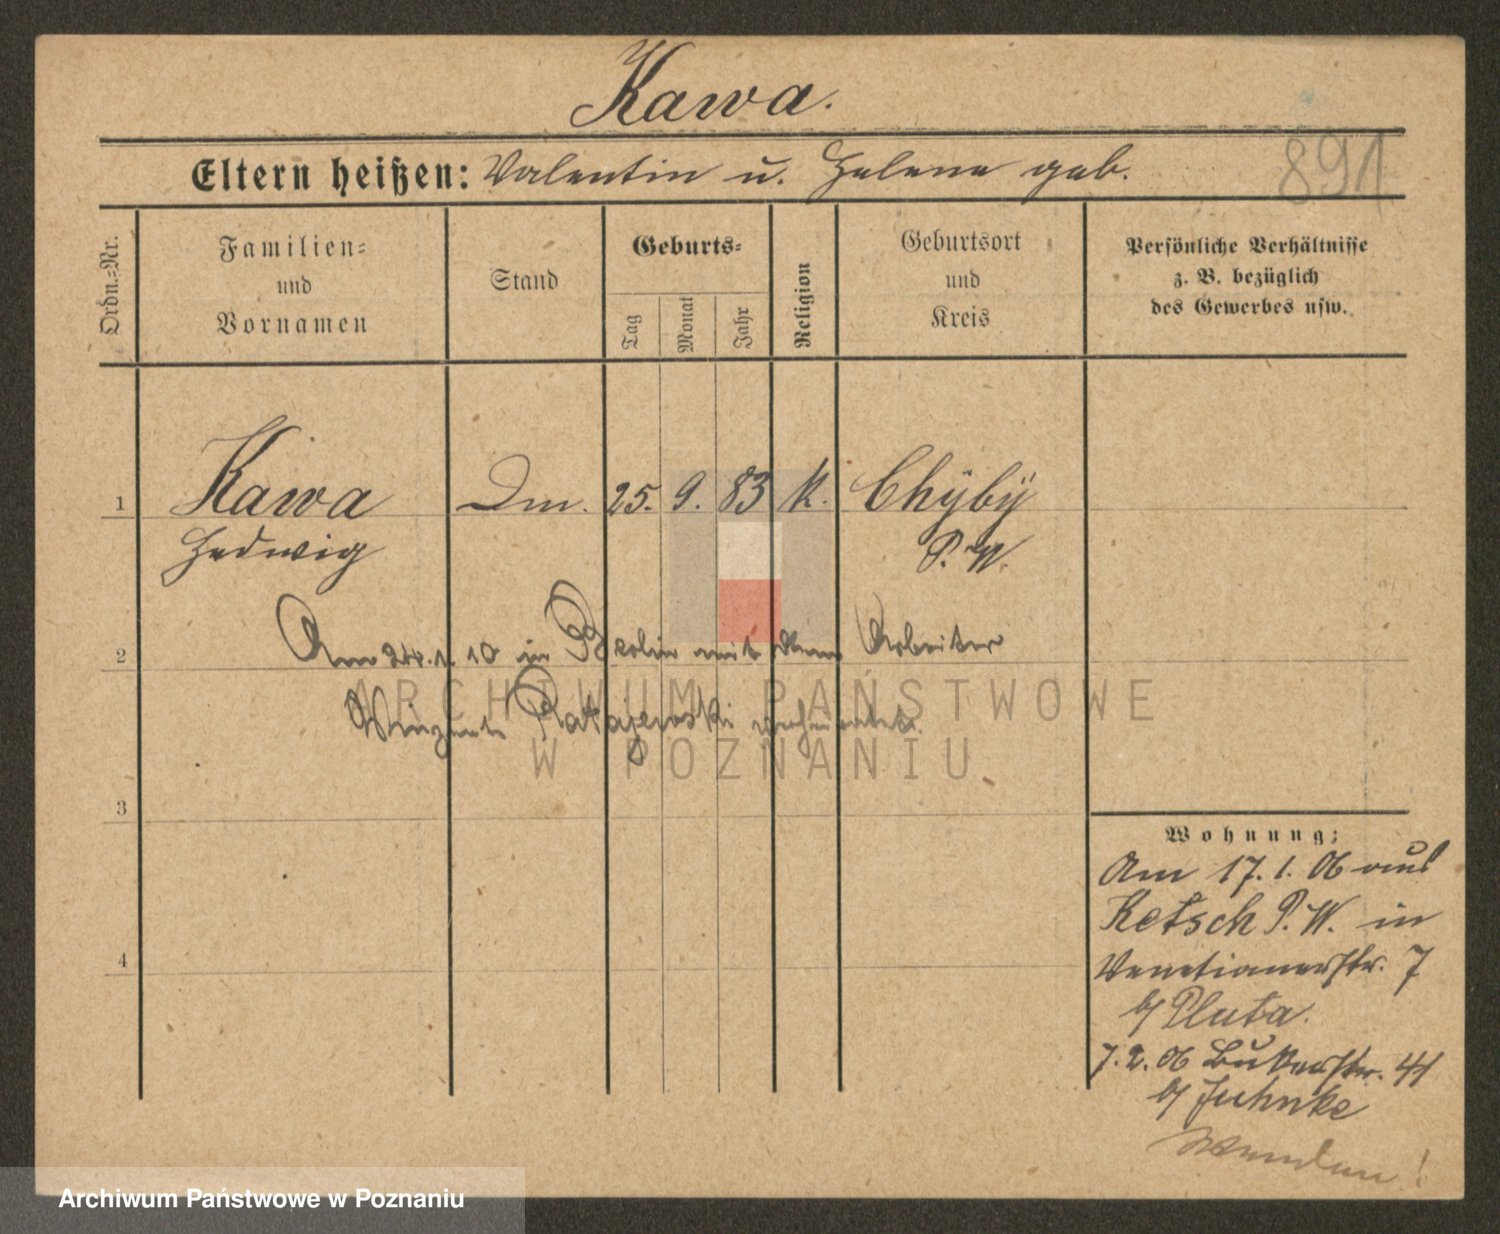 Kawa.
891
Eltern heißen: Valentin u. Helene geb.
Ordn.=Nr.
Familien=
und
Vornamen
Stand
Geburts=
Tag
Monat
Jahr
Religion
Geburtsort
und
Kreis
Persönliche Verhältnisse
z. B. bezüglich
des Gewerbes usw.
1 Kawa Dm. 25. 9. 83 k. Chÿbÿ
Hedwig P. W.
2 Am 24. 1. 10 in Berlin mit dem Arbeiter
Winzent Ratajewski verheiratet.
ARCHIWUM PAŃSTWOWE
W POZNANIU
3
4
Wohnung:
Am 17. 1. 06 aus
Ketsch P. W. in
Venetianerstr. 7
b/ Pluta.
7. 2. 06 Bukerstr. 41
b/ Juhnke
Wenden!
Archiwum Państwowe w Poznaniu